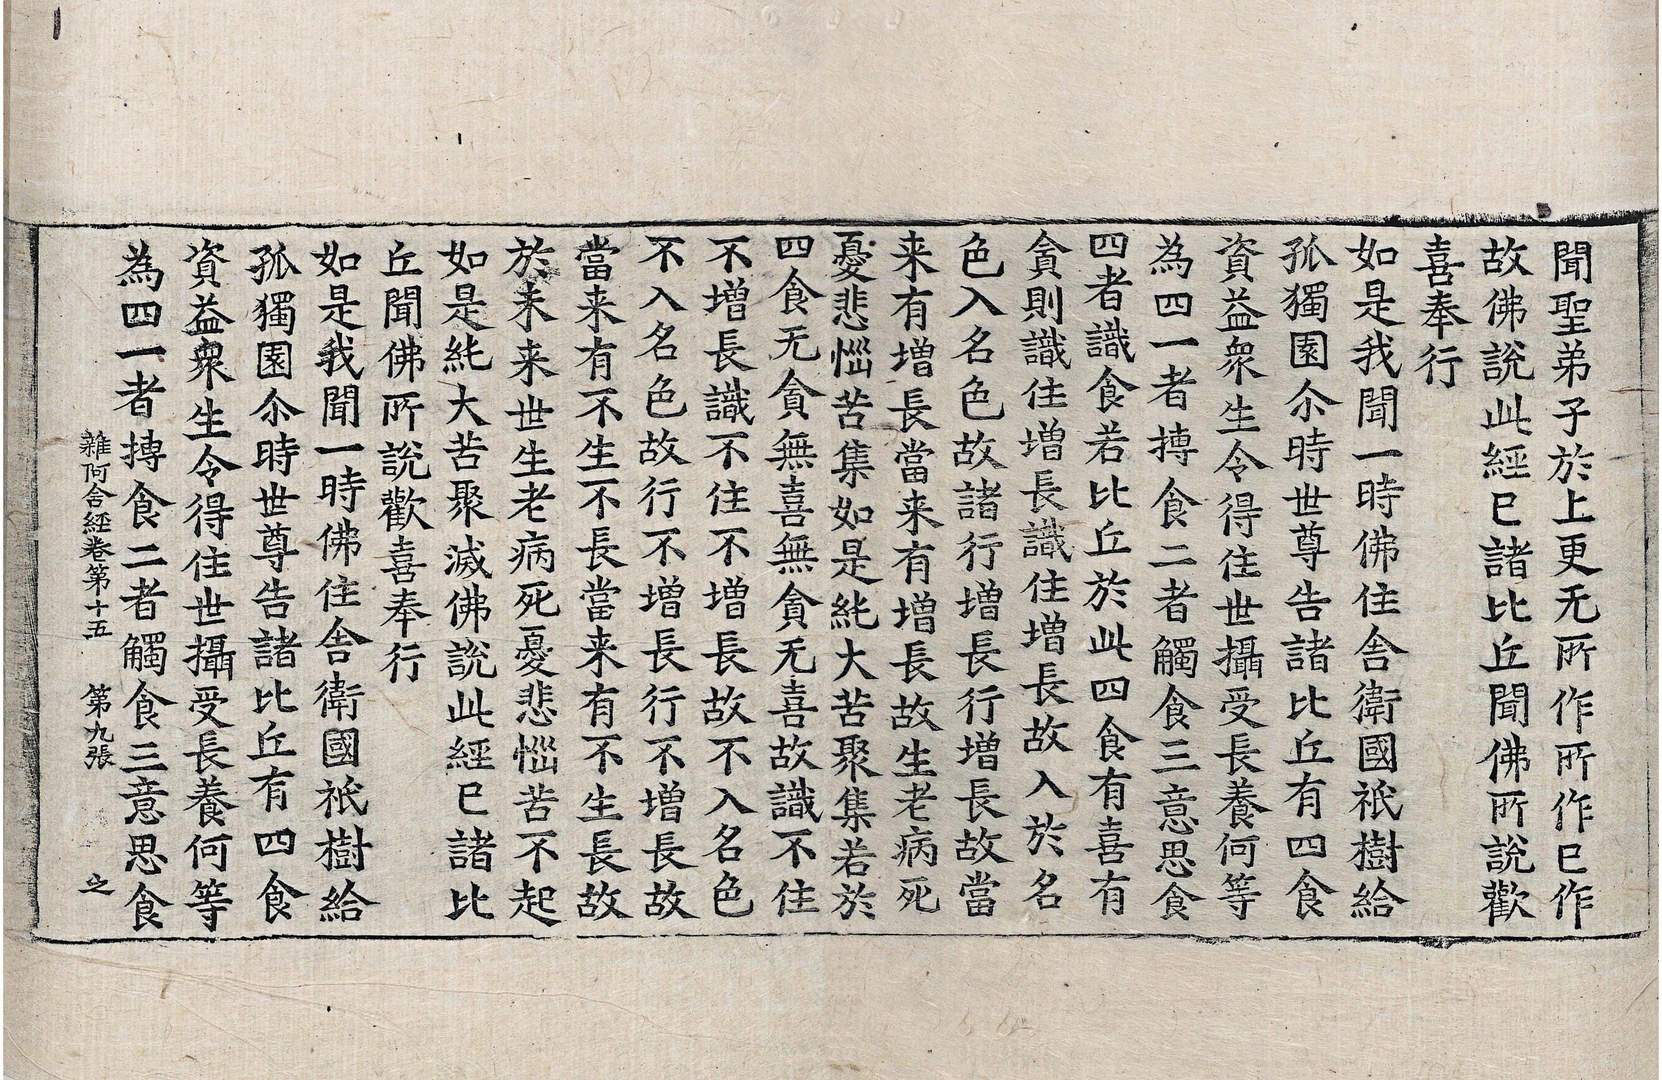 聞聖弟子於上更无所作所作已作
故佛說此經已諸比丘聞佛所說歡
喜奉行
如是我聞一時佛住舍衛國祇樹給
孤獨園尒時世尊告諸比丘有四食
資益衆生令得住世攝受長養何等
為四一者摶食二者觸食三意思食
四者識食若比丘於此四食有喜有
貪則識住增長識住增長故入於名
色入名色故諸行增長行增長故當
来有增長當来有增長故生老病死
憂悲惱苦集如是純大苦聚集若於
四食无貪無喜無貪无喜故識不住
不增長識不住不增長故不入名色
不入名色故行不增長行不增長故
當来有不生不長當来有不生長故
於未来世生老病死憂悲惱苦不起
如是純大苦聚滅佛說此經已諸比
丘聞佛所說歡喜奉行
如是我聞一時佛住舍衛國祇樹給
孤獨園尒時世尊告諸比丘有四食
資益衆生令得住世攝受長養何等
為四一者摶食二者觸食三意思食
雜阿含經卷第十五 第九張 之